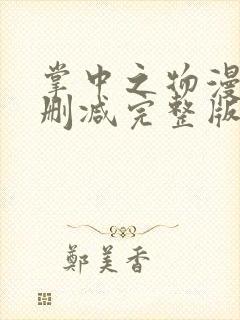 掌中之物漫
删减完整版
鄭美香